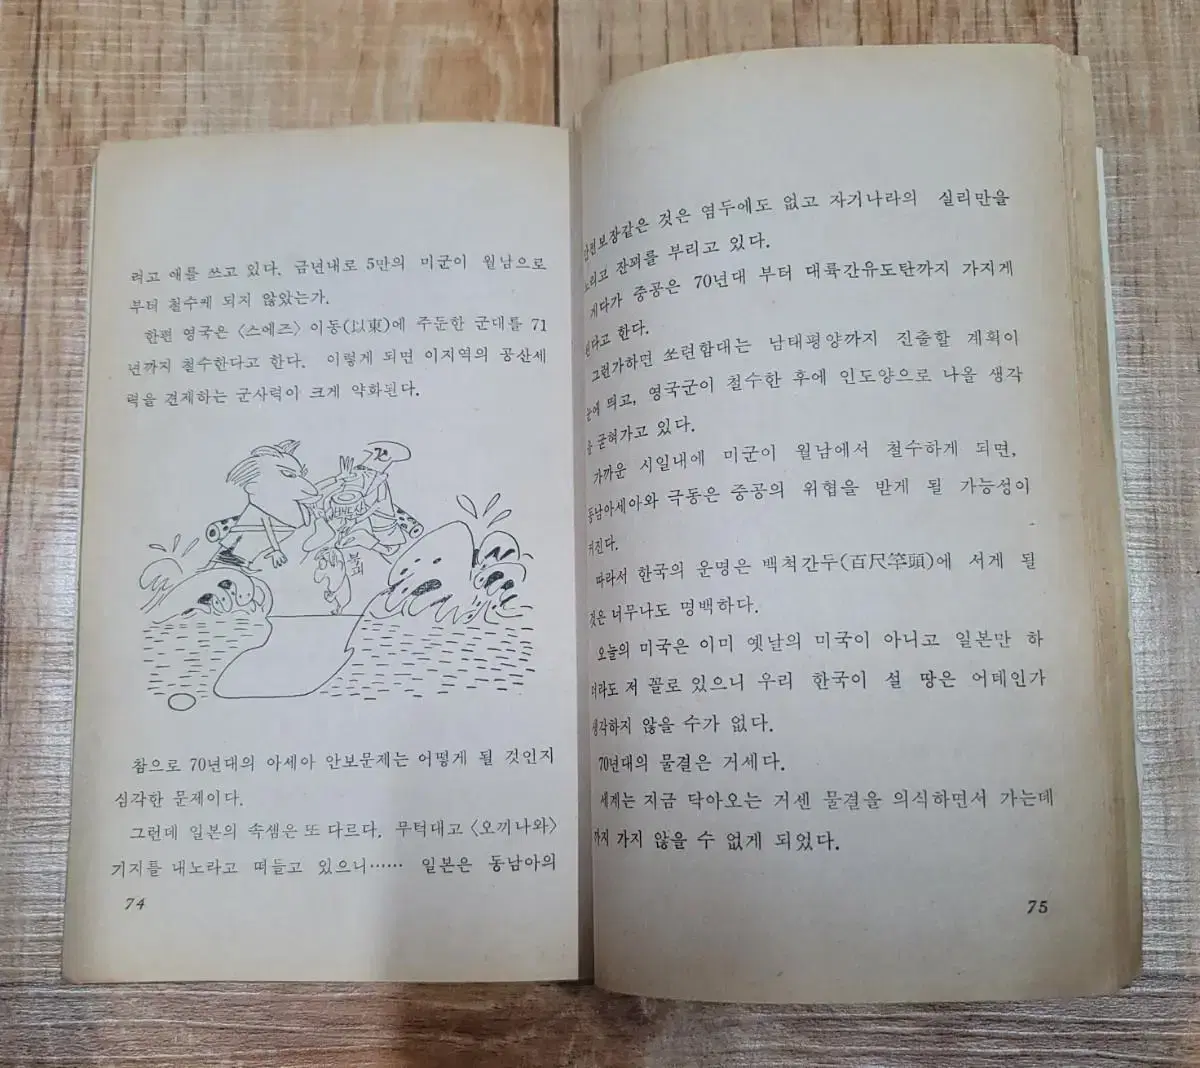 려고 애를 쓰고 있다. 금년내로 5만의 미군이 월남으로
부터 철수케 되지 않았는가.
한편 영국은 〈스에즈〉 이동(以東)에 주둔한 군대를 71
년까지 철수한다고 한다. 이렇게 되면 이지역의 공산세
력을 견제하는 군사력이 크게 약화된다.
백두산
붉괴
참으로 70년대의 아세아 안보문제는 어떻게 될 것인지
심각한 문제이다.
그런데 일본의 속셈은 또 다르다. 무턱대고 〈오끼나와〉
기지를 내노라고 떠들고 있으니…… 일본은 동남아의
74
안전보장같은 것은 염두에도 없고 자기나라의 실리만을
노리고 잔꾀를 부리고 있다.
게다가 중공은 70년대 부터 대륙간유도탄까지 가지게
된다고 한다.
그런가하면 쏘련함대는 남태평양까지 진출할 계획이
눈에 띄고, 영국군이 철수한 후에 인도양으로 나올 생각
을 굳혀가고 있다.
가까운 시일내에 미군이 월남에서 철수하게 되면,
동남아세아와 극동은 중공의 위협을 받게 될 가능성이
커진다.
따라서 한국의 운명은 백척간두(百尺竿頭)에 서게 될
것은 너무나도 명백하다.
오늘의 미국은 이미 옛날의 미국이 아니고 일본만 하
더라도 저 꼴로 있으니 우리 한국이 설 땅은 어데인가
생각하지 않을 수가 없다.
70년대의 물결은 거세다.
세계는 지금 닥아오는 거센 물결을 의식하면서 가는데
까지 가지 않을 수 없게 되었다.
75